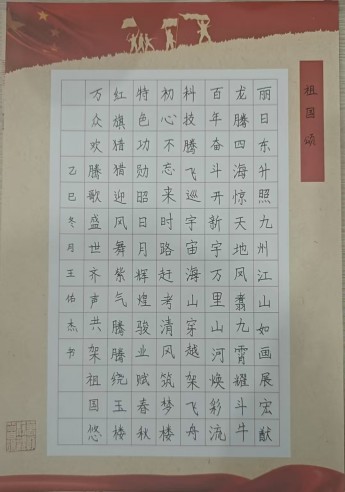 祖国颂
丽日东升照九州江山如画展宏猷
龙腾四海惊天地风翥九霄耀斗牛
百年奋斗开新宇万里山河焕彩流
科技腾飞巡宇宙海山穿越架飞舟
初心不忘来时路赶考清风筑梦楼
特色功勋昭日月辉煌骏业赋春秋
红旗猎猎迎风舞紫气腾腾绕玉楼
万众欢腾歌盛世齐声共架祖国悠
乙巳冬月王佑杰书